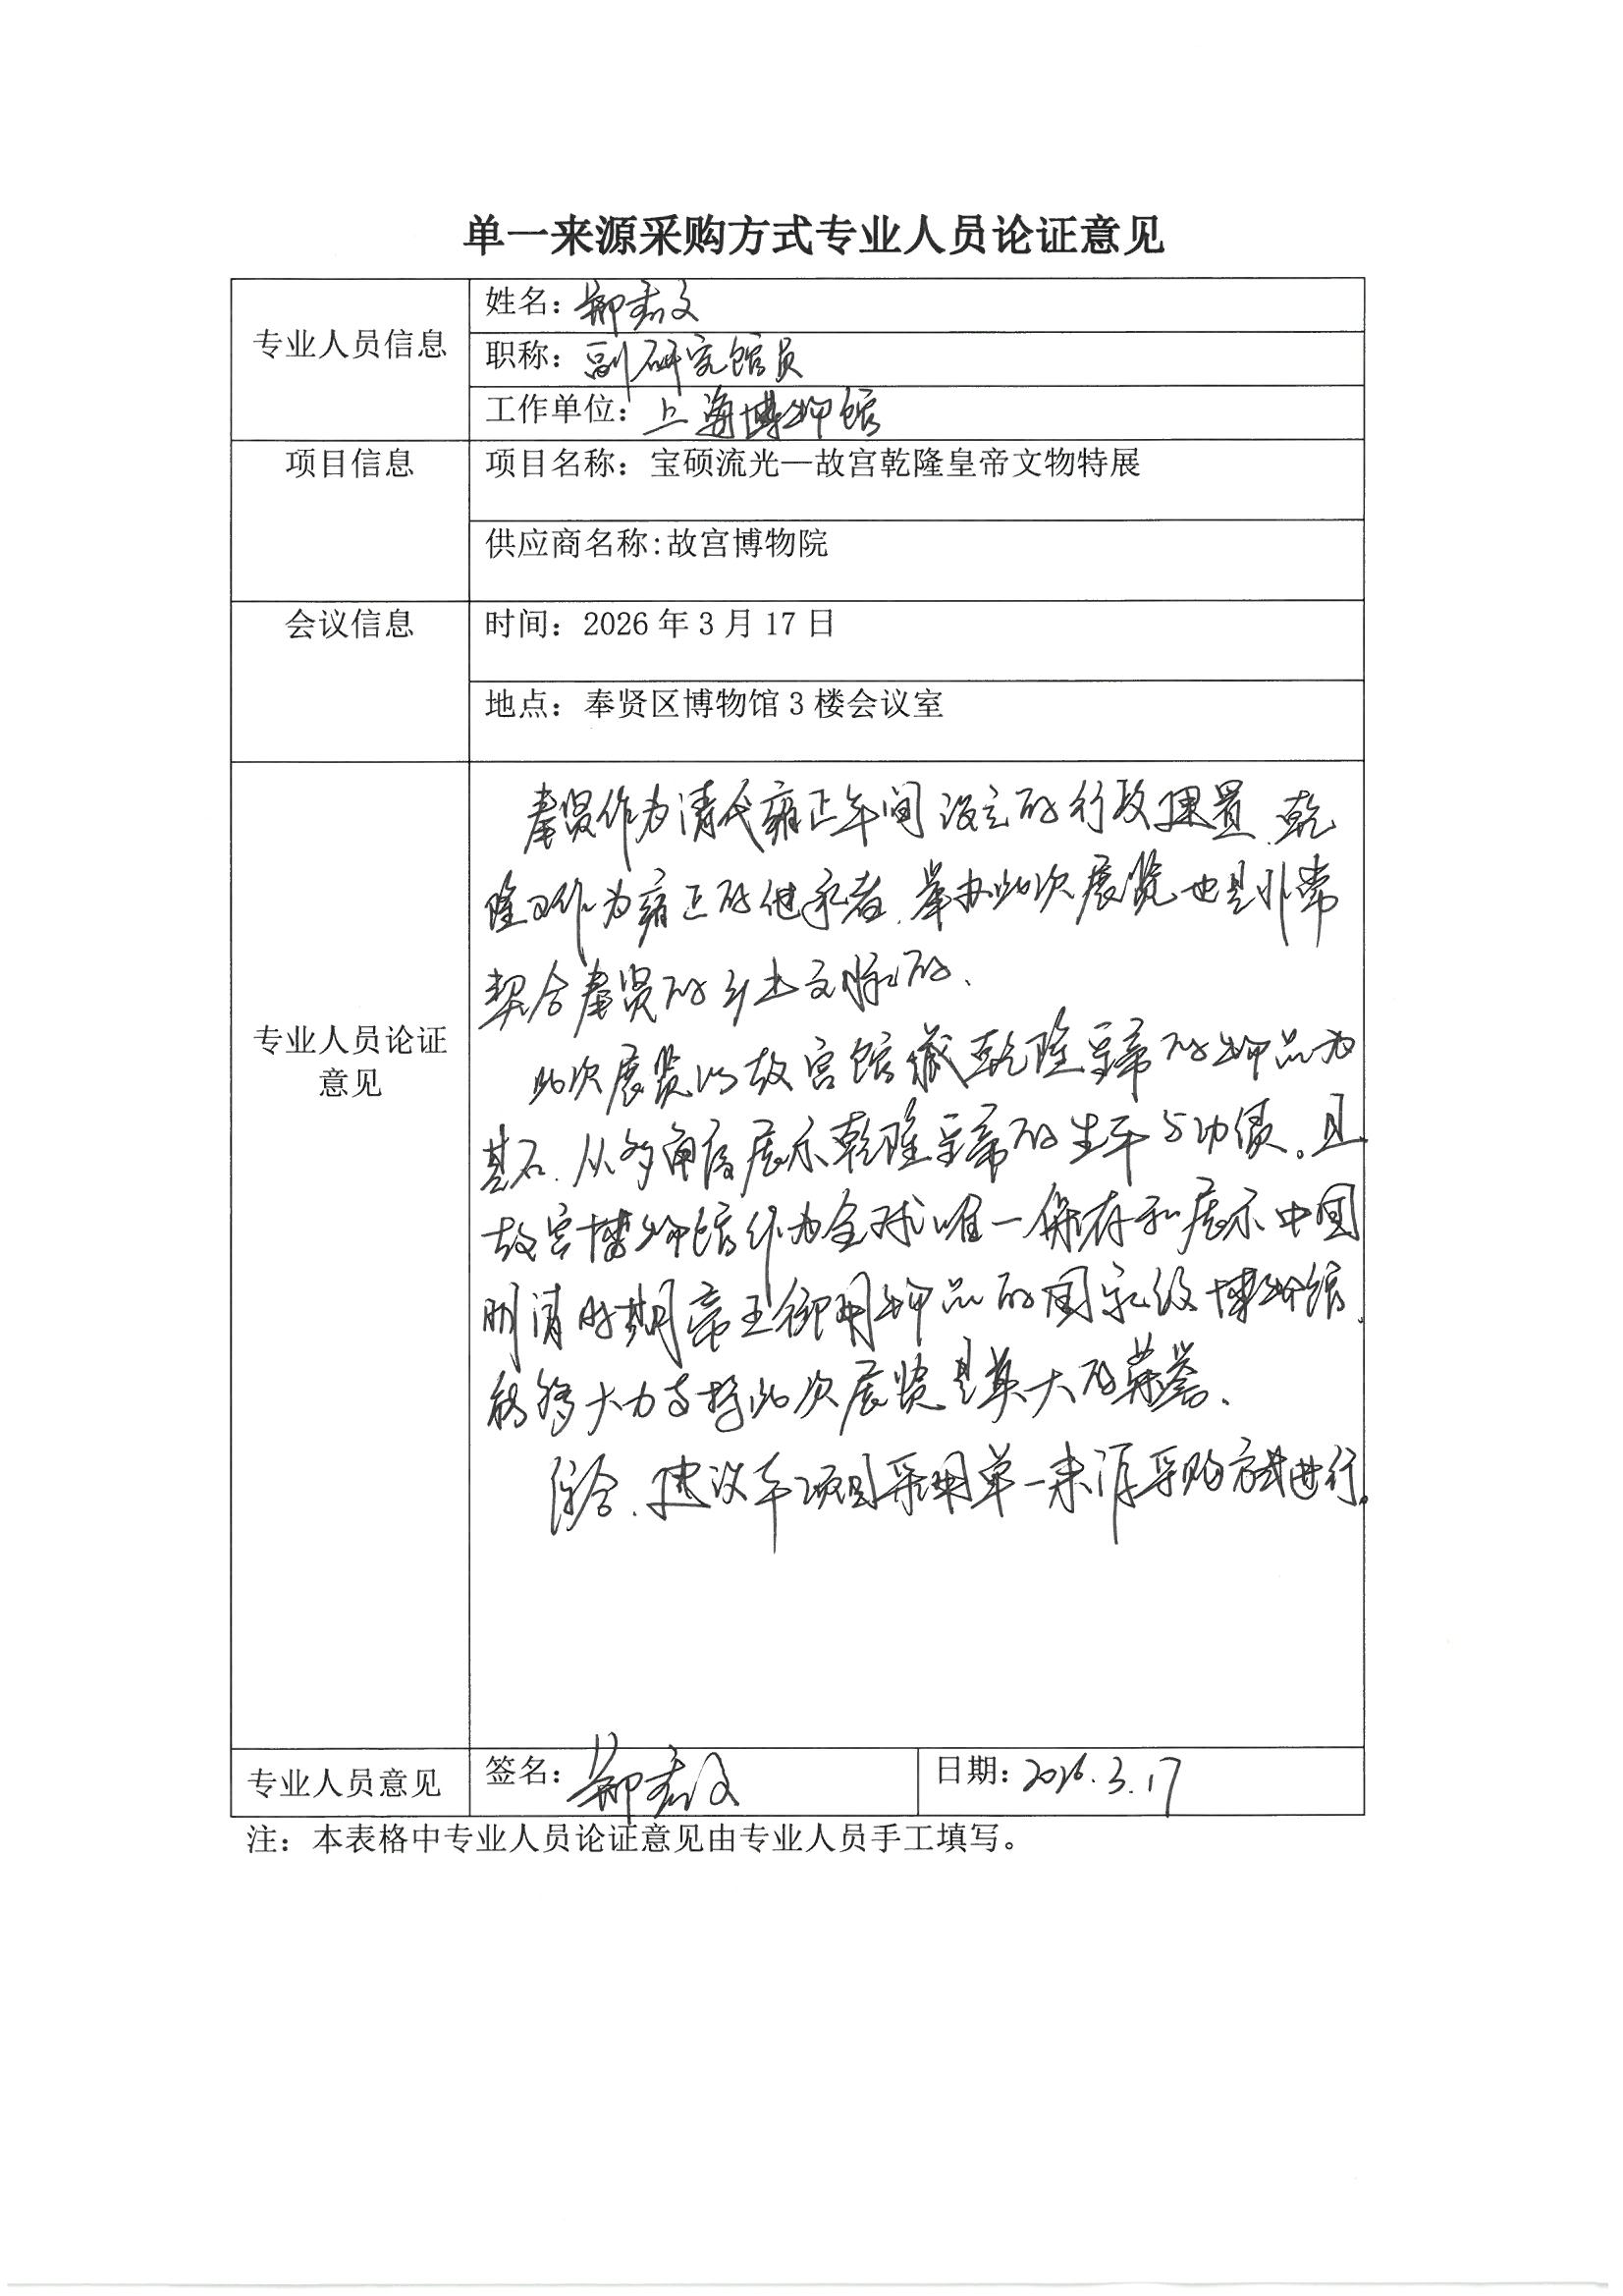 单一来源采购方式专业人员论证意见
专业人员信息
姓名：
职称：副研究馆员
工作单位：上海博物馆
项目信息
项目名称：宝硕流光—故宫乾隆皇帝文物特展
供应商名称:故宫博物院
会议信息
时间：2026年3月17日
地点：奉贤区博物馆3楼会议室
专业人员论证
意见
奉贤作为清代雍正年间设立的行政建置，乾
隆又作为雍正的继承者，举办此次展览也是非常
契合奉贤的乡土文脉的、
此次展览以故宫馆藏乾隆皇帝的物品为
基石，从多角度展示乾隆皇帝的生平与功绩。且
故宫博物馆作为全球唯一保存和展示中国
明清时期帝王御用物品的国家级博物馆，
能够大力支持此次展览是莫大的荣誉、
综合，建议本项目采用单一来源采购方式进行。
专业人员意见
签名：
日期：2026.3.17
注：本表格中专业人员论证意见由专业人员手工填写。